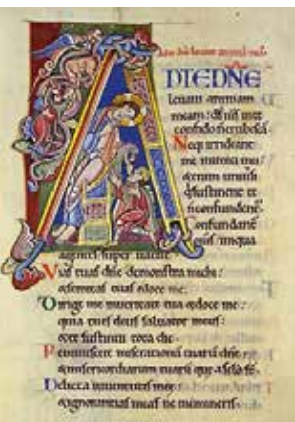 A
DTEDNE
leuaui animam
meam: ds ms inte
confido nerubescā.
Neq irrideant
me inimici mei:
etenim uniuſi
q̇ ſuſtinent te
n confundentᷣ.
Confundant
oms iniqua
agentes super uacue.
Vias tuas dn̄e demonstra michi:
& semitas tuas edoce me.
Dirige me inueritate tua & doce me:
quia tu es deus saluator meus:
& te sustinui tota die.
Reminiscere miserationū tuarū dn̄e:
& misericordiarum tuarū que a
Delicta iuuentutis mee:
& ignorantias meas ne memineris